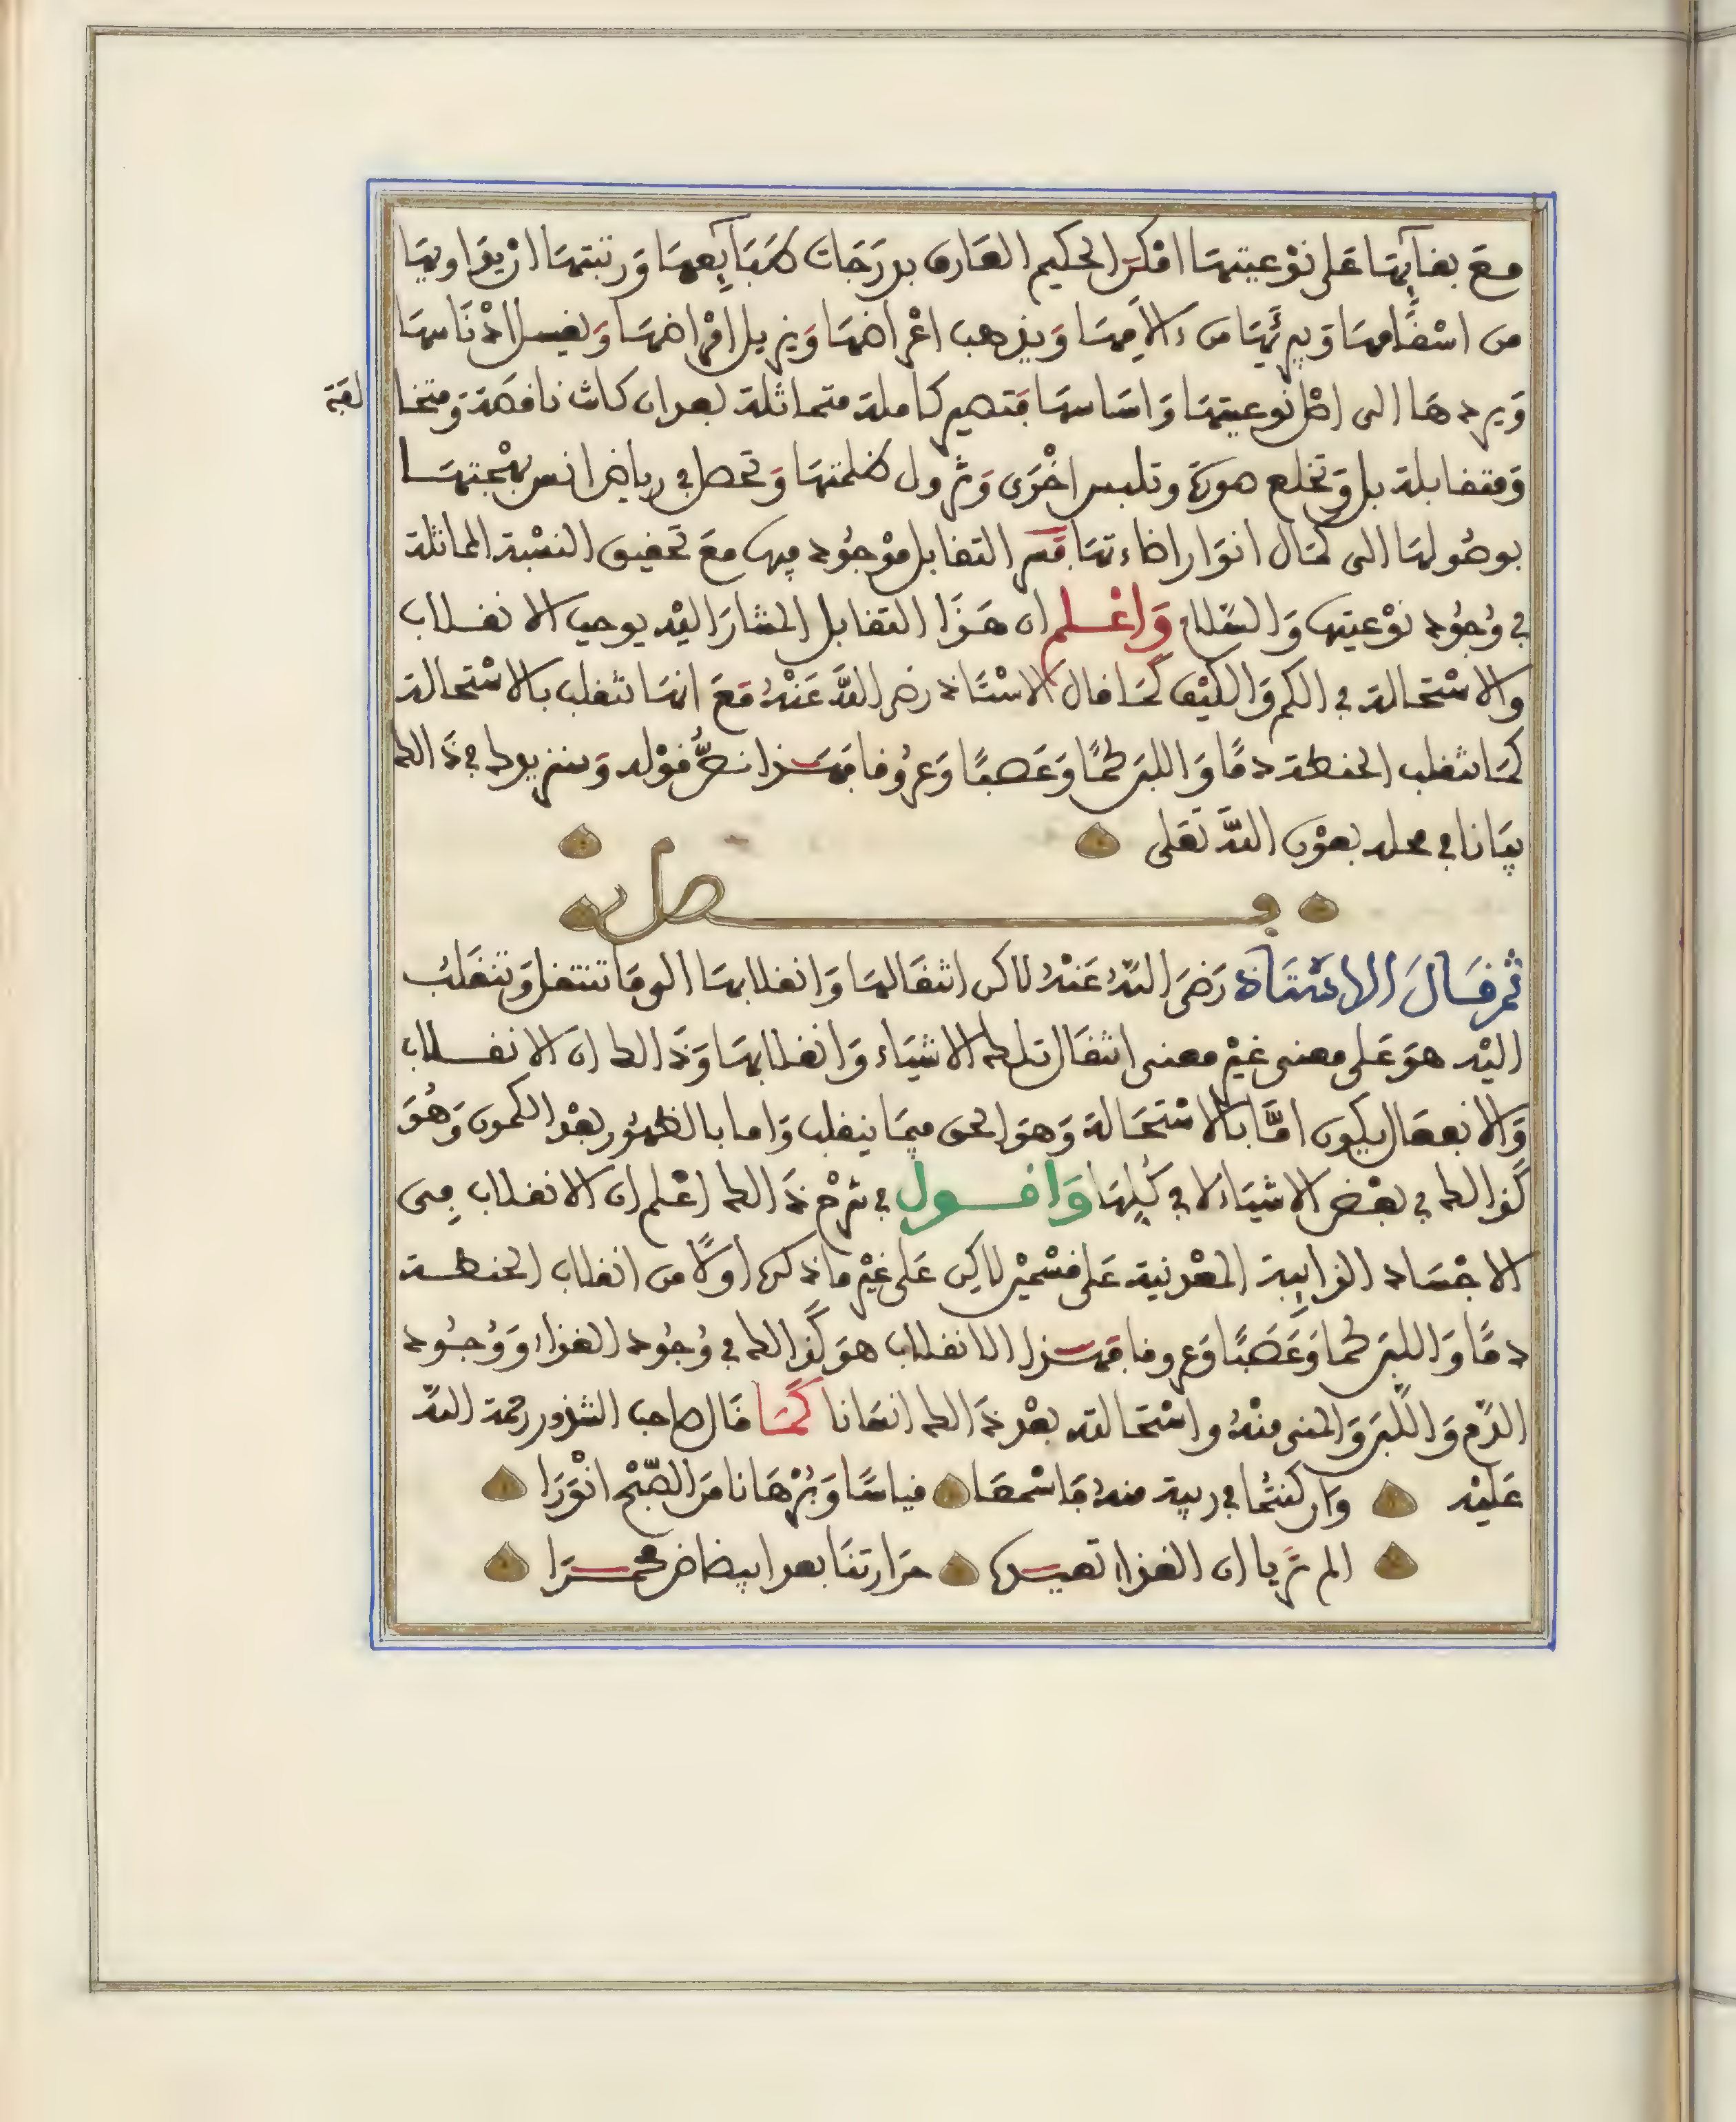 مع بقآئها على نوعيتها امكن الحكيم العارف بدرجات طبآئعها ورتبتها ان يداويها
من اسقامها ويبرئها من ءالامها ويذهب اعراضها ويزيل امراضها ويغسل ادناسها
ويردها الى اصل نوعيتها واساسها فتصير كاملة متماثلة بعد ان كانت ناقصة ومتخالفة
ومتقابلة بل وتخلع صورة وتلبس اخرى وتزول ظلمتها وتحصل في رياض انس بهجتها
بوصولها الى كمال انوار اضاءتها فسر التقابل موجود فيها مع تحقيق النسبة المماثلة
في وجود نوعيتها والسلام واعلم ان هذا التقابل المشار اليه يوجب الانقلاب
والاستحالة في الكم والكيف كما قال الاستاذ رضي الله عنه مع انها تنقلب بالاستحالة
كما تنقلب الحنطة دمًا واللبن لحمًا وعصبًا وعروقا فهذا نصُّ قوله وسنزيدك في ذالك
بيانا في محله بعون الله تعلى
فصل
ثم قال الاستاذ رضي الله عنه لاكن انتقالها وانقلابها الى ما تنتقل وتنقلب
اليه هو على معنى غير معنى انتقال تلك الاشياء وانقلابها وذالك ان الانقلاب
والانفصال يكون امَّا بالاستحالة وهو الحق فيما ينقلب واما بالظهور بعد الكمون وهو
كذالك في بعض الاشياء لا في كلها واقول في شرح ذالك اعلم ان الانقلاب في
الاجساد الذايبة المعدنية على قسمين لاكن على غير ما ذكره اولًا من انقلاب الحنطة
دمًا واللبن لحما وعصبًا وعروقا فهذا الانقلاب هو كذالك في وجود الغذاء ووجود
الدم واللبن والمني منه واستحالته بعد ذالك انسانا كما قال صاحب الشذور رحمة الله
عليه وان كنتما في ريبة منه فاسمعا قياسًا وبرهانا من الصبح انورا
الم تريا ان الغذا تصيره حرارتنا بعد ابيضاض محمرا